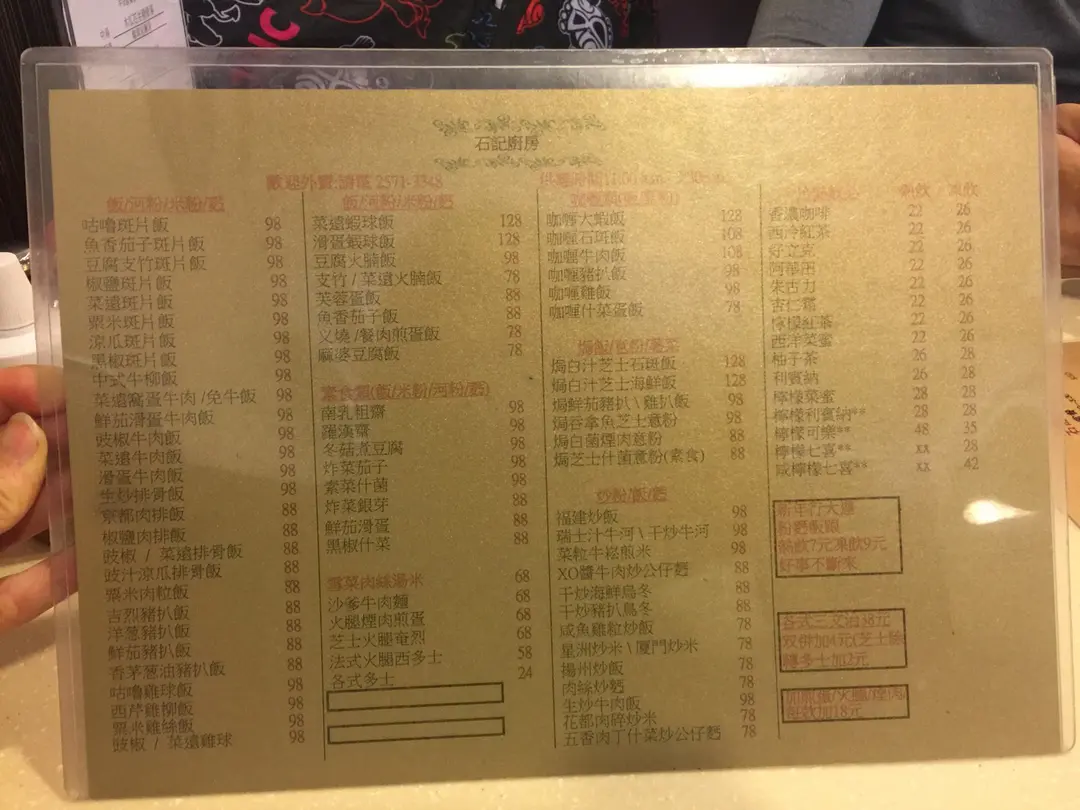 石記廚房
歡迎外賣:請電 2571-3348
飯/河粉/米粉/麪
咕嚕斑片飯 98
魚香茄子斑片飯 98
豆腐支竹斑片飯 98
椒鹽斑片飯 98
菜遠斑片飯 98
粟米斑片飯 98
涼瓜斑片飯 98
黑椒斑片飯 98
中式牛柳飯 98
菜遠窩蛋牛肉 /免牛飯 98
鮮茄滑蛋牛肉飯 98
豉椒牛肉飯 98
菜遠牛肉飯 98
滑蛋牛肉飯 98
生炒排骨飯 98
京都肉排飯 88
椒鹽肉排飯 88
豉椒 / 菜遠排骨飯 88
豉汁涼瓜排骨飯 88
粟米肉粒飯 88
吉烈豬扒飯 88
洋葱豬扒飯 88
鮮茄豬扒飯 88
香茅葱油豬扒飯 88
咕嚕雞球飯 98
西芹雞柳飯 98
粟米雞絲飯 98
豉椒 / 菜遠雞球 98
飯/河粉/米粉/麪
菜遠蝦球飯 128
滑蛋蝦球飯 128
豆腐火腩飯 98
支竹 / 菜遠火腩飯 78
芙蓉蛋飯 88
魚香茄子飯 88
义燒 /餐肉煎蛋飯 78
麻婆豆腐飯 78
素食類(飯/米粉/河粉/麪)
南乳粗齋 98
羅漢齋 98
冬菇煮豆腐 98
炸菜茄子 98
素菜什菌 98
炸菜銀芽 88
鮮茄滑蛋 88
黑椒什菜 88
雪菜肉絲湯米 68
沙爹牛肉麵 68
火腿煙肉煎蛋 68
芝士火腿奄烈 68
法式火腿西多士 58
各式多士 24
咖喱大蝦飯 128
咖喱石斑飯 108
咖喱牛肉飯 108
咖喱豬扒飯 98
咖喱雞飯 98
咖喱什菜蛋飯 78
焗白汁芝士石斑飯 128
焗白汁芝士海鮮飯 128
焗鮮茄豬扒 \ 雞扒飯 98
焗吞拿魚芝士意粉 98
焗白菌煙肉意粉 88
焗芝士什菌意粉(素食) 88
炒粉/飯/麪
福建炒飯 98
瑞士汁牛河 \ 干炒牛河 98
菜粒牛崧煎米 98
XO醬牛肉炒公仔麪 88
干炒海鮮烏冬 88
干炒豬扒烏冬 88
咸魚雞粒炒飯 78
星洲炒米 \ 廈門炒米 78
揚州炒飯 78
肉絲炒麪 78
生炒牛肉飯 98
花都肉碎炒米 78
五香肉丁什菜炒公仔麪 78
熱飲 / 凍飲
香濃咖啡 22 26
西冷紅茶 22 26
好立克 22 26
阿華田 22 26
朱古力 22 26
杏仁霜 22 26
檸檬紅茶 22 26
西洋菜蜜 22 26
柚子茶 26 28
利賓納 26 28
檸檬菜蜜 28 28
檸檬利賓納** 28 28
檸檬可樂** 48 35
檸檬七喜** xx 28
咸檸檬七喜** xx 42
新年行大運
粉麪飯跟
熱飲7元凍飲9元
好事不斷來
各式三文治 38元
双併加4元(芝士除
轉多士加2元
加煎蛋/火腿/煙肉
每款加18元